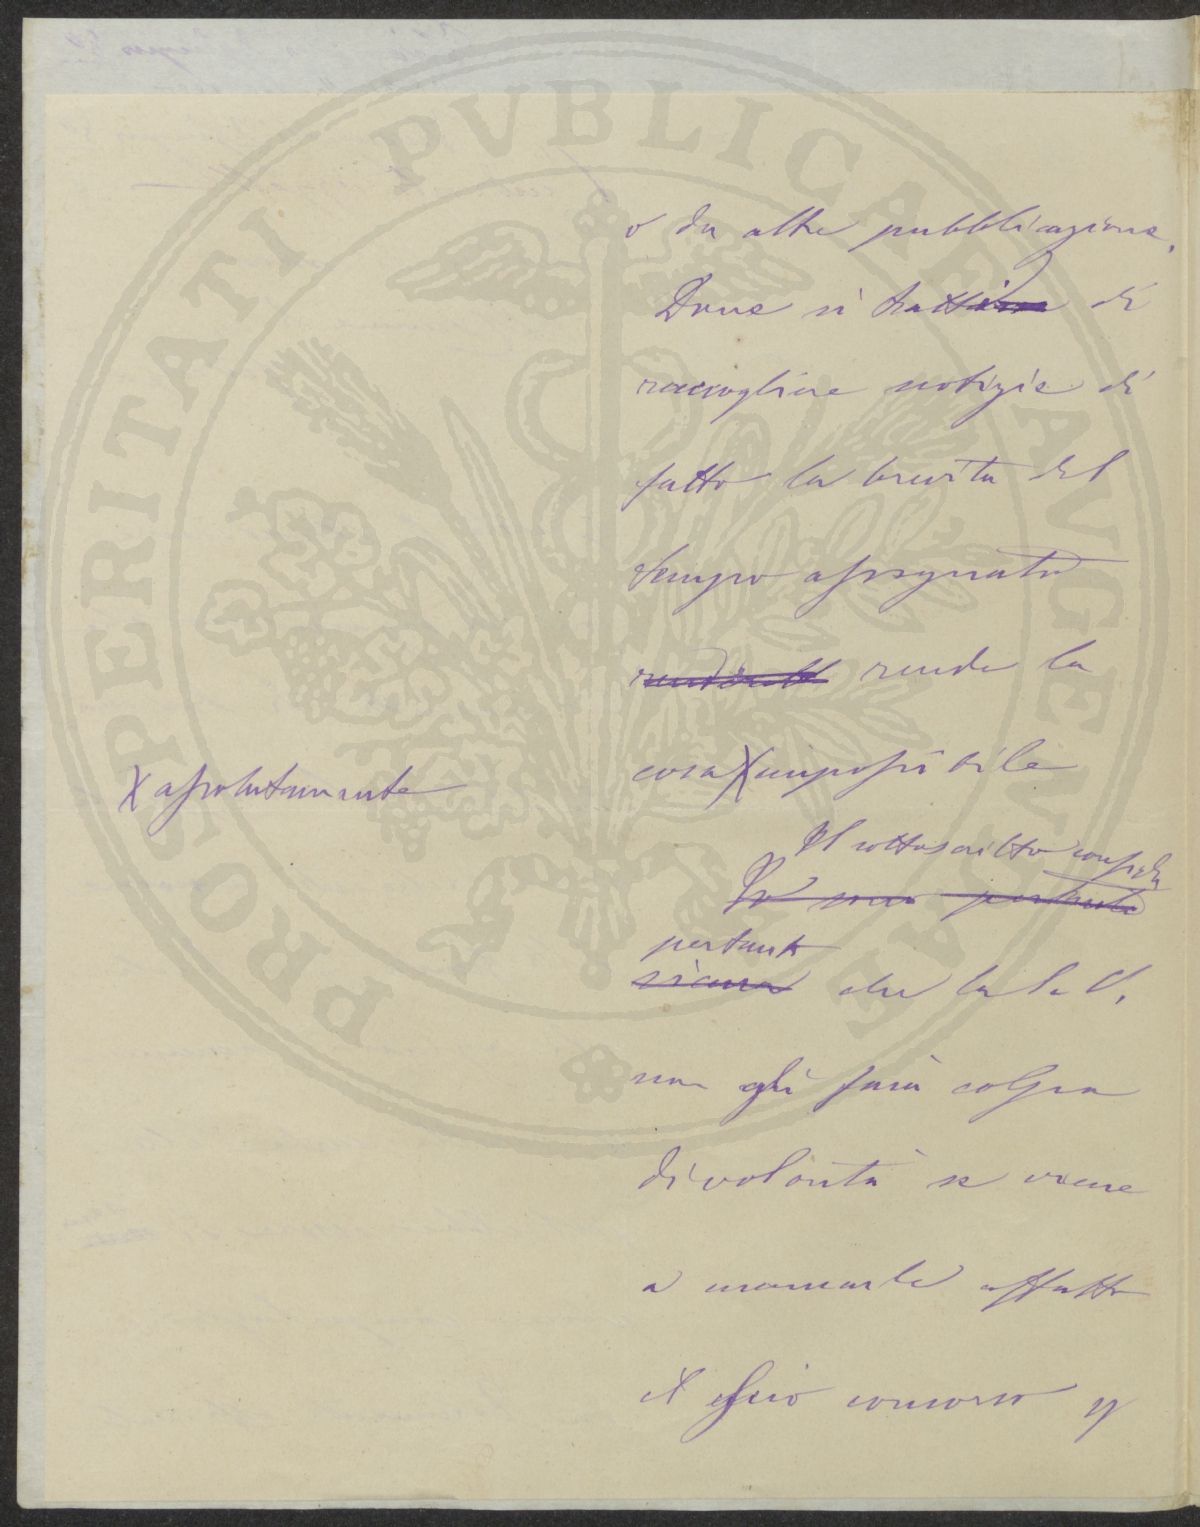 PROSPERITATI PVBLICAE AVGENDAE
o da altre pubblicazione.
Dove si tratti di
raccogliere notizie di
fatto la brevita del
tempo assegnato
rende la
cosa X impossibile
X assolutamente
Il sottoscritto confida
Io non pertanto
pertanto
che la S. V.
non gli farà colpa
di volontà se viene
a mancarle affatto
il suo concorso